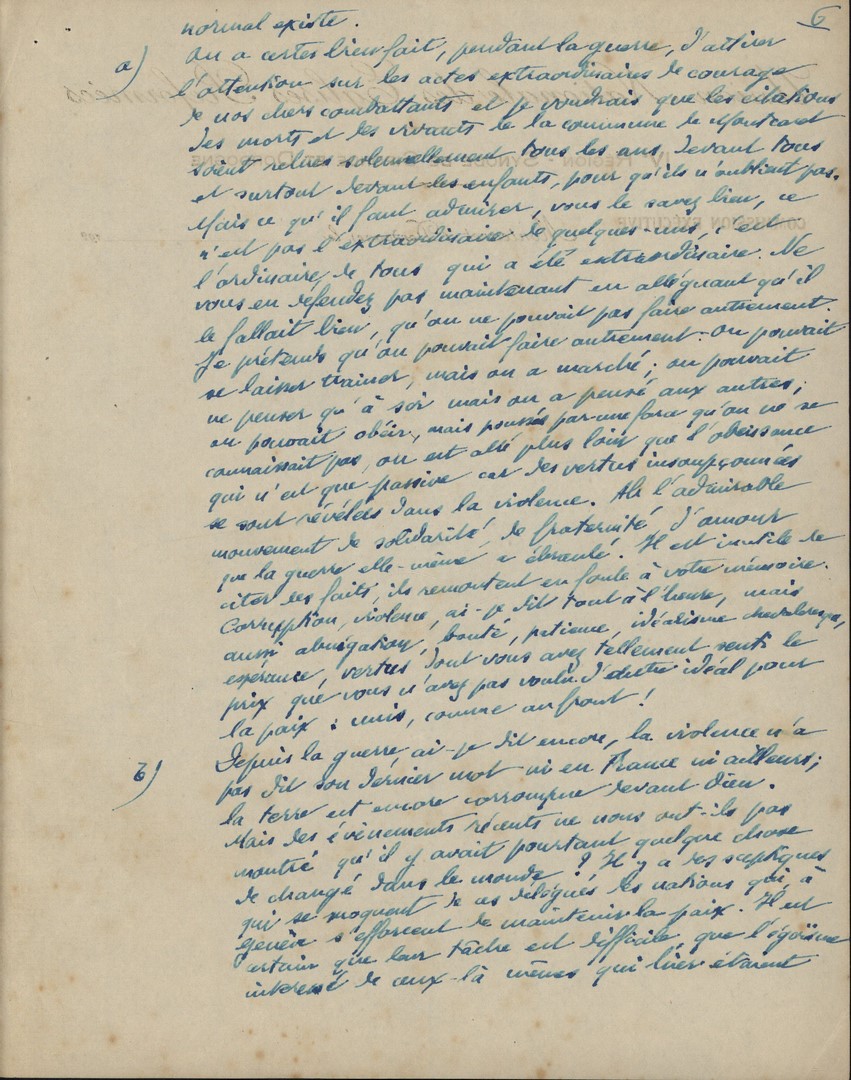 6
normal existe.
a) On a certes bien fait, pendant la guerre, d'attirer
l'attention sur les actes extraordinaires de courage
de nos chers combattants et je voudrais que les citations
des morts et des vivants de la commune de Montcaret
soient relues solennellement tous les ans, devant tous
et surtout devant les enfants, pour qu'ils n'oublient pas.
Mais ce qu'il faut admirer, vous le savez bien, ce
n'est pas l'extraordinaire de quelques-uns, c'est
l'ordinaire de tous qui a été extraordinaire. Ne
vous en défendez pas maintenant en alléguant qu'il
le fallait bien, qu'on ne pouvait pas faire autrement.
Je prétends qu'on pouvait faire autrement. On pouvait
se laisser trainer, mais on a marché; on pouvait
ne penser qu'à soi mais on a pensé aux autres;
on pouvait obéir, mais poussés par une force qu'on ne se
connaissait pas, on est allé plus loin que l'obéissance
qui n'est que passive car des vertus insoupçonnées
se sont révélées dans la violence. Ah l'admirable
mouvement de solidarité, de fraternité, d'amour
que la guerre elle-même a ébranlé. Il est inutile de
citer des faits, ils remontent en foule à votre mémoire.
Corruption, violence, ai-je dit tout à l'heure, mais
aussi abnégation, bonté, patience, idéalisme chevaleresque,
espérance, vertus dont vous avez tellement senti le
prix que vous n'avez pas voulu d'autre idéal pour
la paix : unis, comme au front !
b) Depuis la guerre, ai-je dit encore, la violence n'a
pas dit son dernier mot ni en France ni ailleurs;
la terre est encore corrompue devant Dieu.
Mais des évènements récents ne nous ont-ils pas
montré qu'il y avait pourtant quelque chose
de changé dans le monde ? Il y a des sceptiques
qui se moquent de ces délégués des nations qui, à
Genève s'efforcent de maintenir la paix. Il est
certain que leur tâche est difficile, que l'égoïsme
intéressé de ceux-là mêmes qui hier étaient